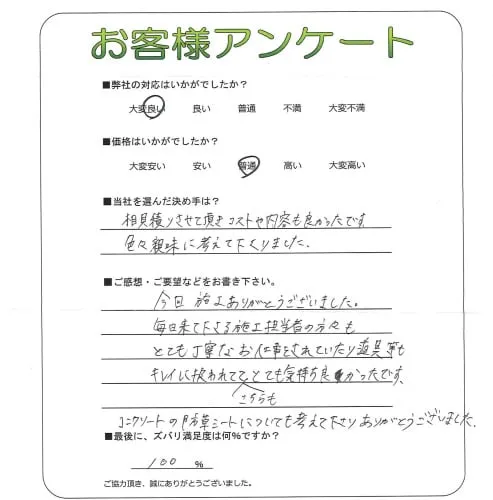 お客様アンケート
■弊社の対応はいかがでしたか？
大変良い 良い 普通 不満 大変不満
■価格はいかがでしたか？
大変安い 安い 普通 高い 大変高い
■当社を選んだ決め手は？
相見積りさせて頂きコストや内容も良かったです
色々親味に考えて下さりました.
■ご感想・ご要望などをお書き下さい。
今回 施工ありがとうございました。
毎日来て下さる施工担当者の方々も
とても丁寧なお仕事をされていたり道具等も
キレイに扱われてて とても気持ち良かったです、
こちらも
コンクリートの防草シートについても考えて下さりありがとうございました.
■最後に、ズバリ満足度は何%ですか？
100 %
ご協力頂き、誠にありがとうございました。